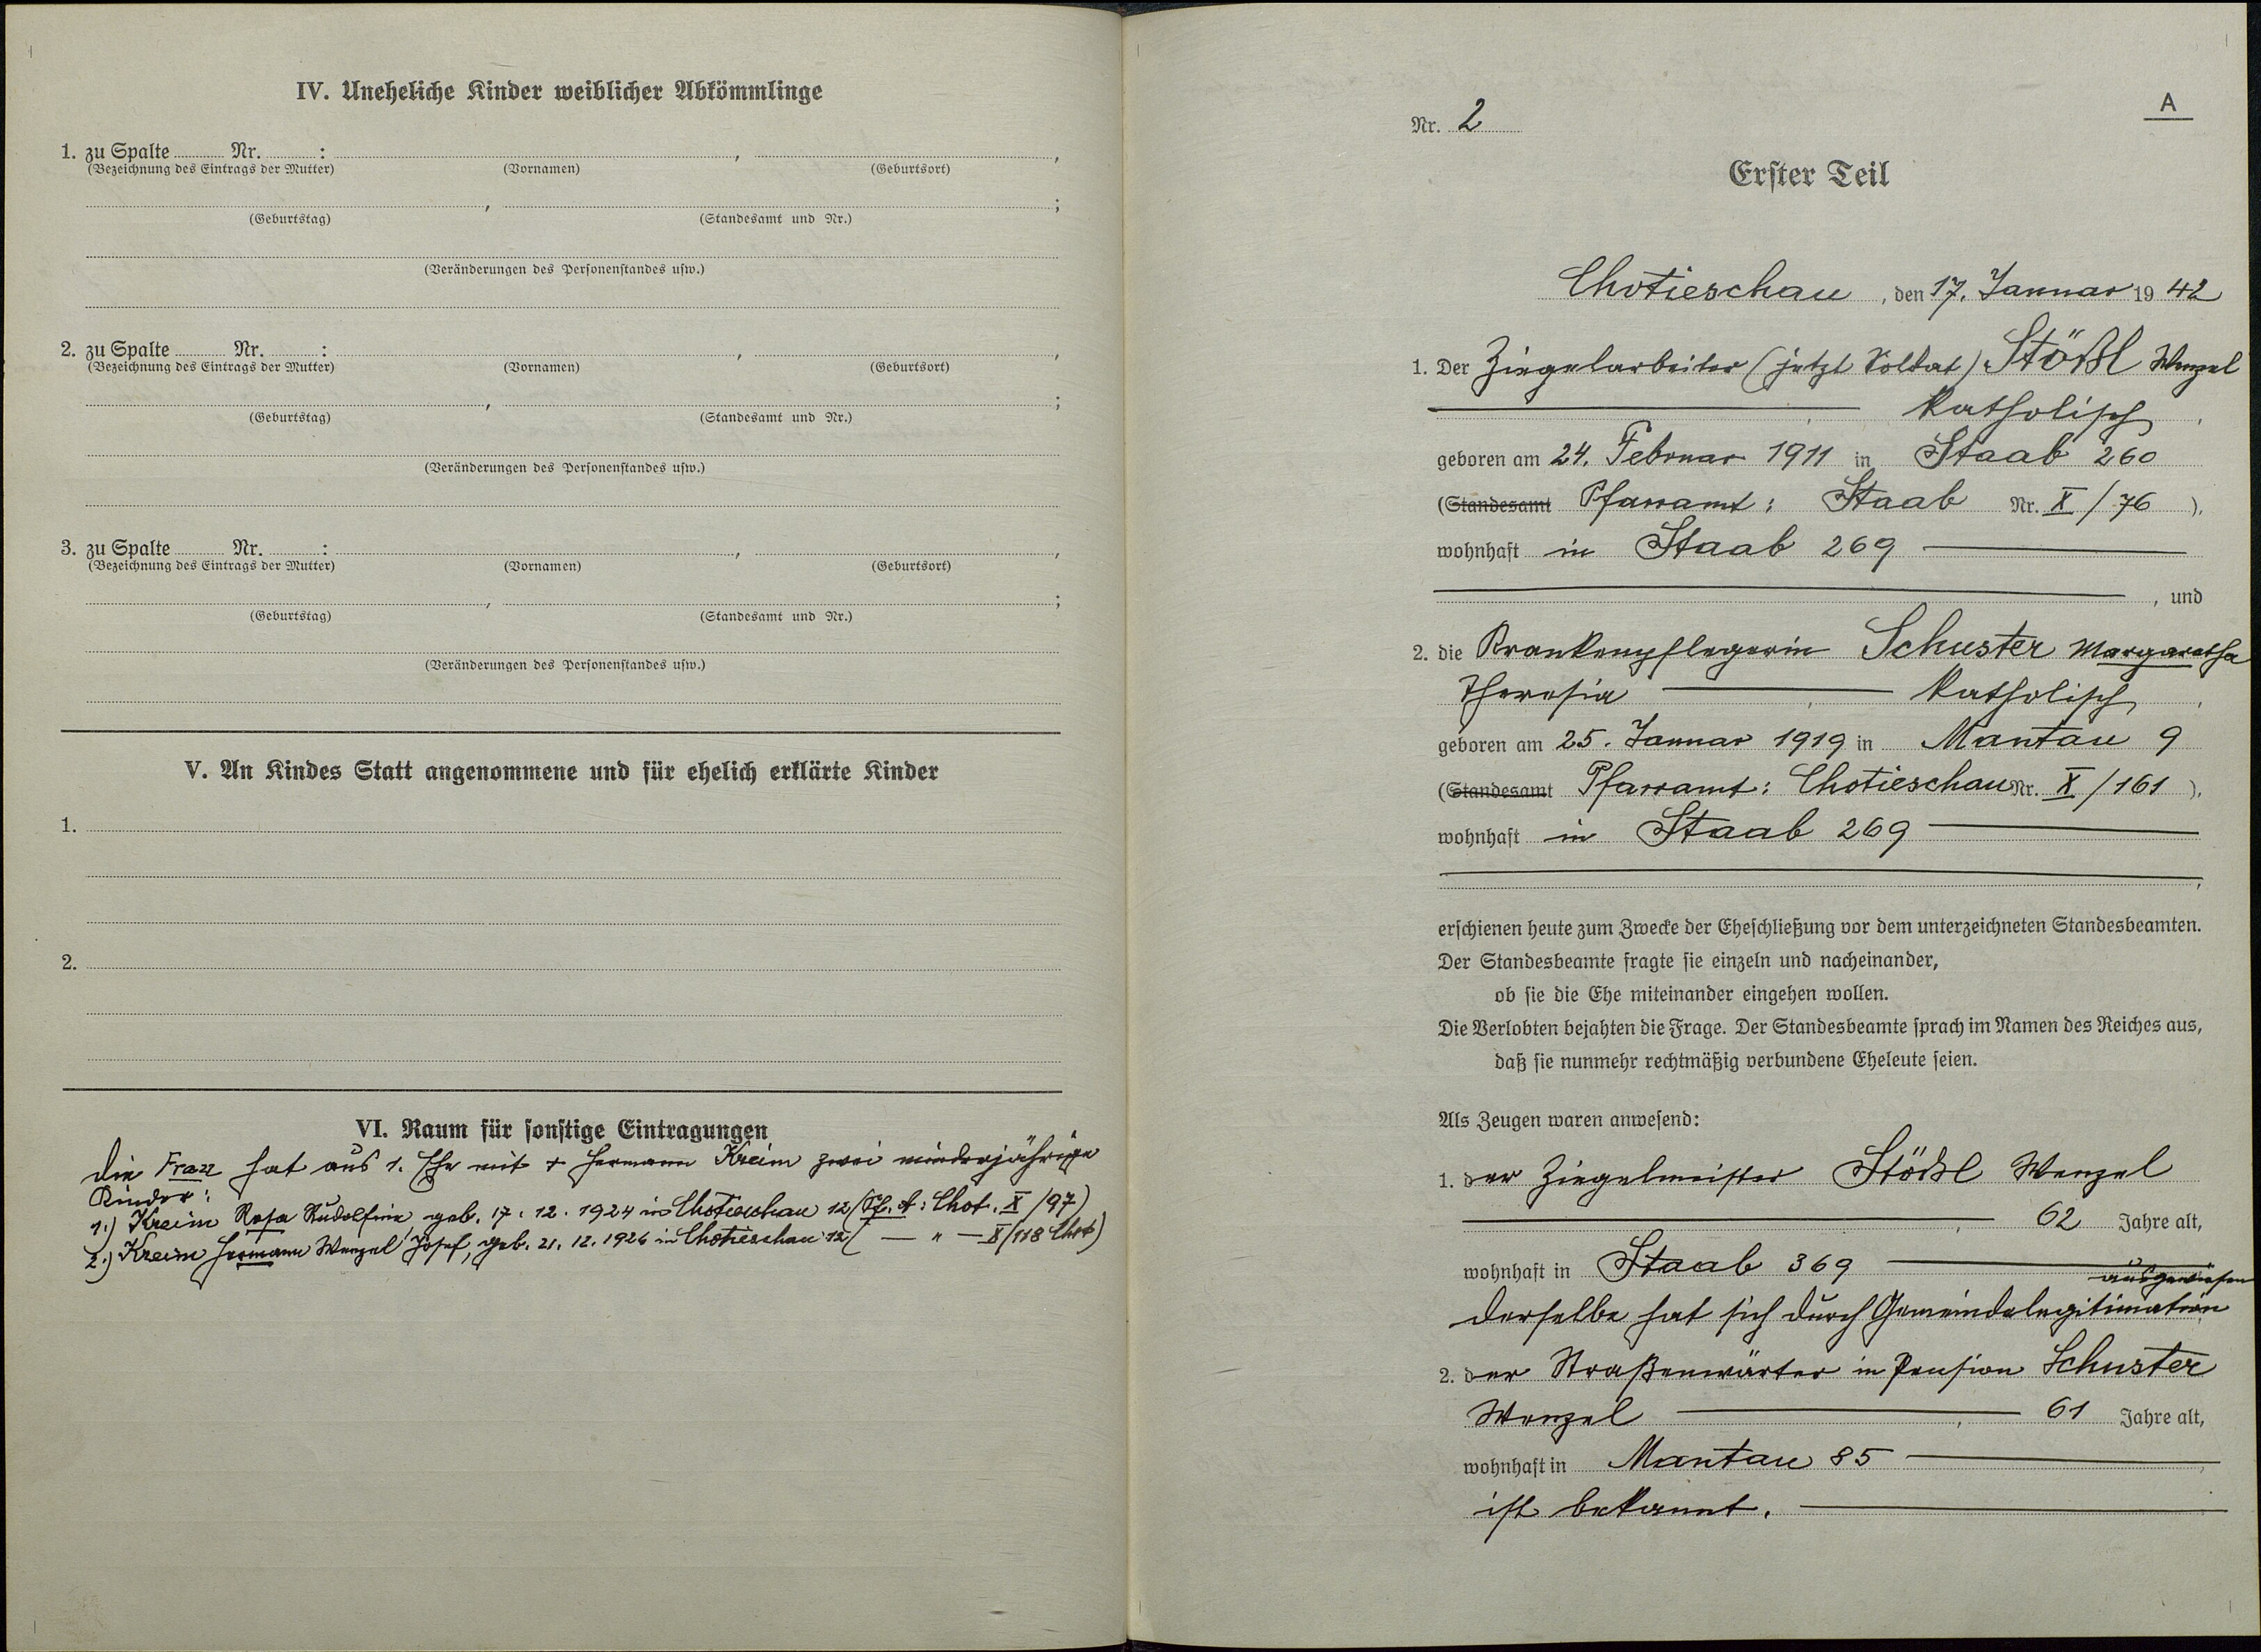 IV. Uneheliche Kinder weiblicher Abkömmlinge
1. zu Spalte Nr. : , ,
(Bezeichnung des Eintrags der Mutter) (Vornamen) (Geburtsort)
, ;
(Geburtstag) (Standesamt und Nr.)
(Veränderungen des Personenstandes usw.)
2. zu Spalte Nr. : , ,
(Bezeichnung des Eintrags der Mutter) (Vornamen) (Geburtsort)
, ;
(Geburtstag) (Standesamt und Nr.)
(Veränderungen des Personenstandes usw.)
3. zu Spalte Nr. : , ,
(Bezeichnung des Eintrags der Mutter) (Vornamen) (Geburtsort)
, ;
(Geburtstag) (Standesamt und Nr.)
(Veränderungen des Personenstandes usw.)
V. An Kindes Statt angenommene und für ehelich erklärte Kinder
1.
2.
VI. Raum für sonstige Eintragungen
Die Frau hat aus 1. Ehe mit + Hermann Kreim zwei minderjährige
Kinder:
1.) Kreim Rosa Rudolfine, geb. 17.12.1924 in Chotieschau 12 (Pf. A: Chot. X/97)
2.) Kreim Hermann Wenzel Josef, geb. 21.12.1926 in Chotieschau 12 ( — " — X/118 Chot)
A
Nr. 2
Erster Teil
Chotieschau, den 17. Januar 1942
1. Der Ziegelarbeiter (jetzt Soldat) Stößl Wenzel
, katholisch,
geboren am 24. Februar 1911 in Staab 260
(Standesamt Pfarramt: Staab Nr. X/76 ),
wohnhaft in Staab 269
, und
2. die Krankenpflegerin Schuster Margaretha
Theresia , katholisch,
geboren am 25. Januar 1919 in Mantau 9
(Standesamt Pfarramt: Chotieschau Nr. X/161 ),
wohnhaft in Staab 269
,
erschienen heute zum Zwecke der Eheschließung vor dem unterzeichneten Standesbeamten.
Der Standesbeamte fragte sie einzeln und nacheinander,
ob sie die Ehe miteinander eingehen wollen.
Die Verlobten bejahten die Frage. Der Standesbeamte sprach im Namen des Reiches aus,
daß sie nunmehr rechtmäßig verbundene Eheleute seien.
Als Zeugen waren anwesend:
1. der Ziegelmeister Stößl Wenzel
, 62 Jahre alt,
wohnhaft in Staab 369
ausgewiesen
derselbe hat sich durch Gemeindelegitimation
2. der Straßenwärter in Pension Schuster
Wenzel , 61 Jahre alt,
wohnhaft in Mantau 85
ist bekannt.